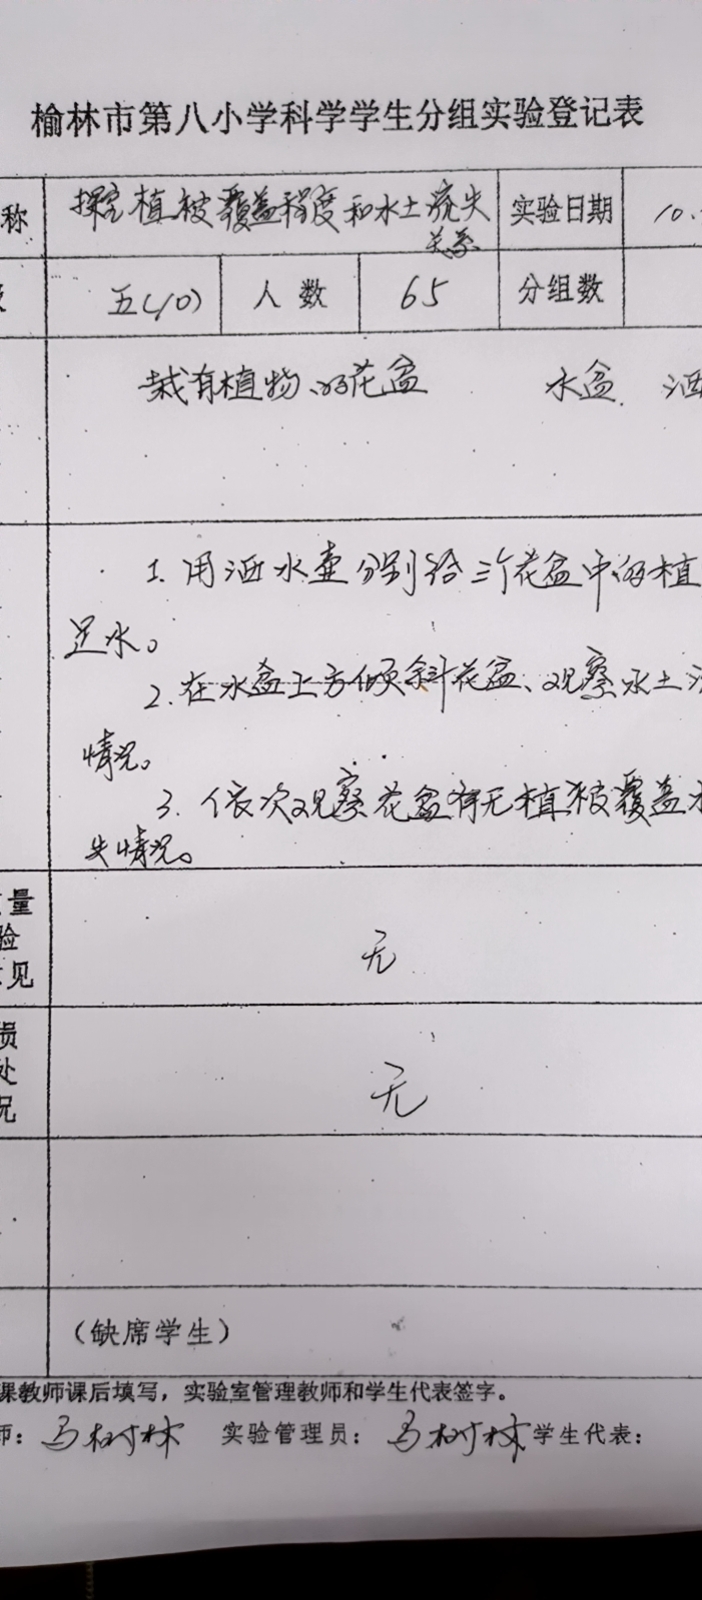 榆林市第八小学科学学生分组实验登记表
称 探究植被覆盖程度和水土流失 实验日期 10.
关系
五(10) 人数 65 分组数
栽有植物的花盆 水盆 洒
1. 用洒水壶分别给三个花盆中的植
足水。
2. 在水盆上方倾斜花盆、观察水土
情况。
3. 依次观察花盆有无植被覆盖水
失情况。
量
验
见
无
损
处
况
无
(缺席学生)
课教师课后填写，实验室管理教师和学生代表签字。
师：马树林 实验管理员：马树林 学生代表：